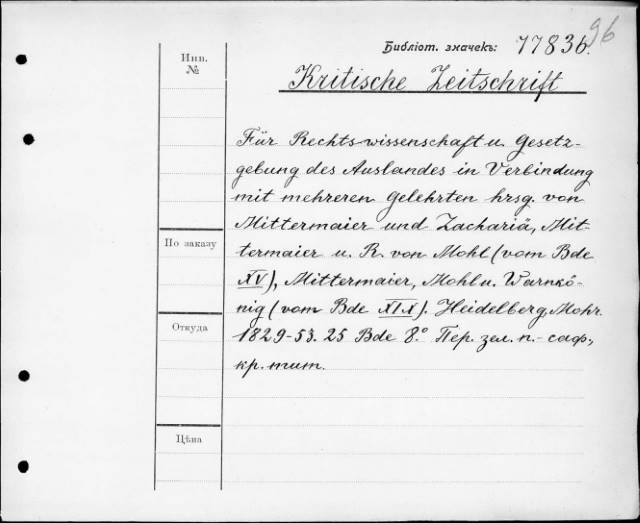 96
Библiот. значекъ: 77836.
Инв.
№
Kritische Zeitschrift
Für Rechtswissenschaft u. Gesetz-
gebung des Auslandes in Verbindung
mit mehreren Gelehrten hrsg. von
Mittermaier und Zachariä, Mit-
termaier u. R. von Mohl (vom Bde
XV), Mittermaier, Mohl u. Warnkö-
nig (vom Bde XIX). Heidelberg, Mohr.
1829-53. 25 Bde 8.° Пер. зел. п.-саф.,
кр. тит.
По заказу
Откуда
Цѣна